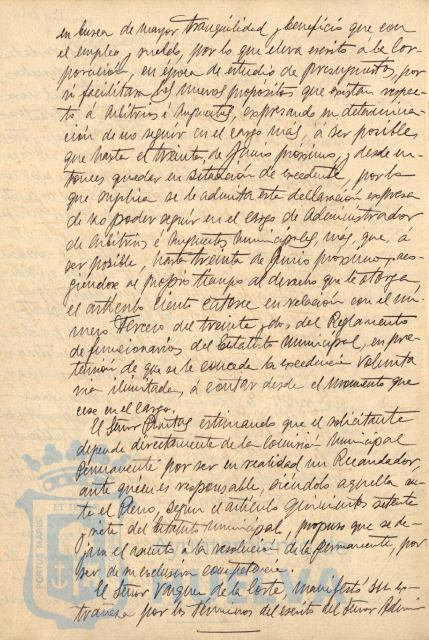 en busca de mayor tranquilidad y beneficio que con
el empleo y sueldo, por lo que eleva escrito á la Cor-
poración, en época de estudio de presupuesto, por
si facilitan los nuevos propósitos que existan respec-
to á Arbitrios é impuestos, expresando su determina-
ción de no seguir en el cargo mas, á ser posible
que hasta el treinta de Junio próximo, y desde en-
tonces quedar en situación de excedente, por lo
que suplica se le admita esta declaración expresa
de no poder seguir en el cargo de Administrador
de Arbitrios é impuestos municipales, más, que, á
ser posible, hasta treinta de Junio próximo, aco-
giéndose al propio tiempo al derecho que le otorga
el artículo ciento catorce en relación con el nú-
mero tercero del treinta y dos del Reglamento
de funcionarios del Estatuto Municipal, en pre-
tensión de que se le conceda la excedencia volunta-
ria ilimitada, á contar desde el momento que
cese en el cargo.
El Señor estimando que el solicitante
depende directamente de la Comisión Municipal
Permanente por ser en realidad un Recaudador,
ante quien es responsable, siéndolo aquella an-
te el Pleno, según el artículo quinientos setenta
y siete del Estatuto municipal, propuso que se de-
jara el asunto á la resolución de la Permanente, por
ser de su exclusiva competencia.
El Señor Vázquez de la Corte, manifestó su ex-
trañeza por los términos del escrito del Señor Admi
PORTUS MARIS ET
Ayuntamiento de
HUELVA